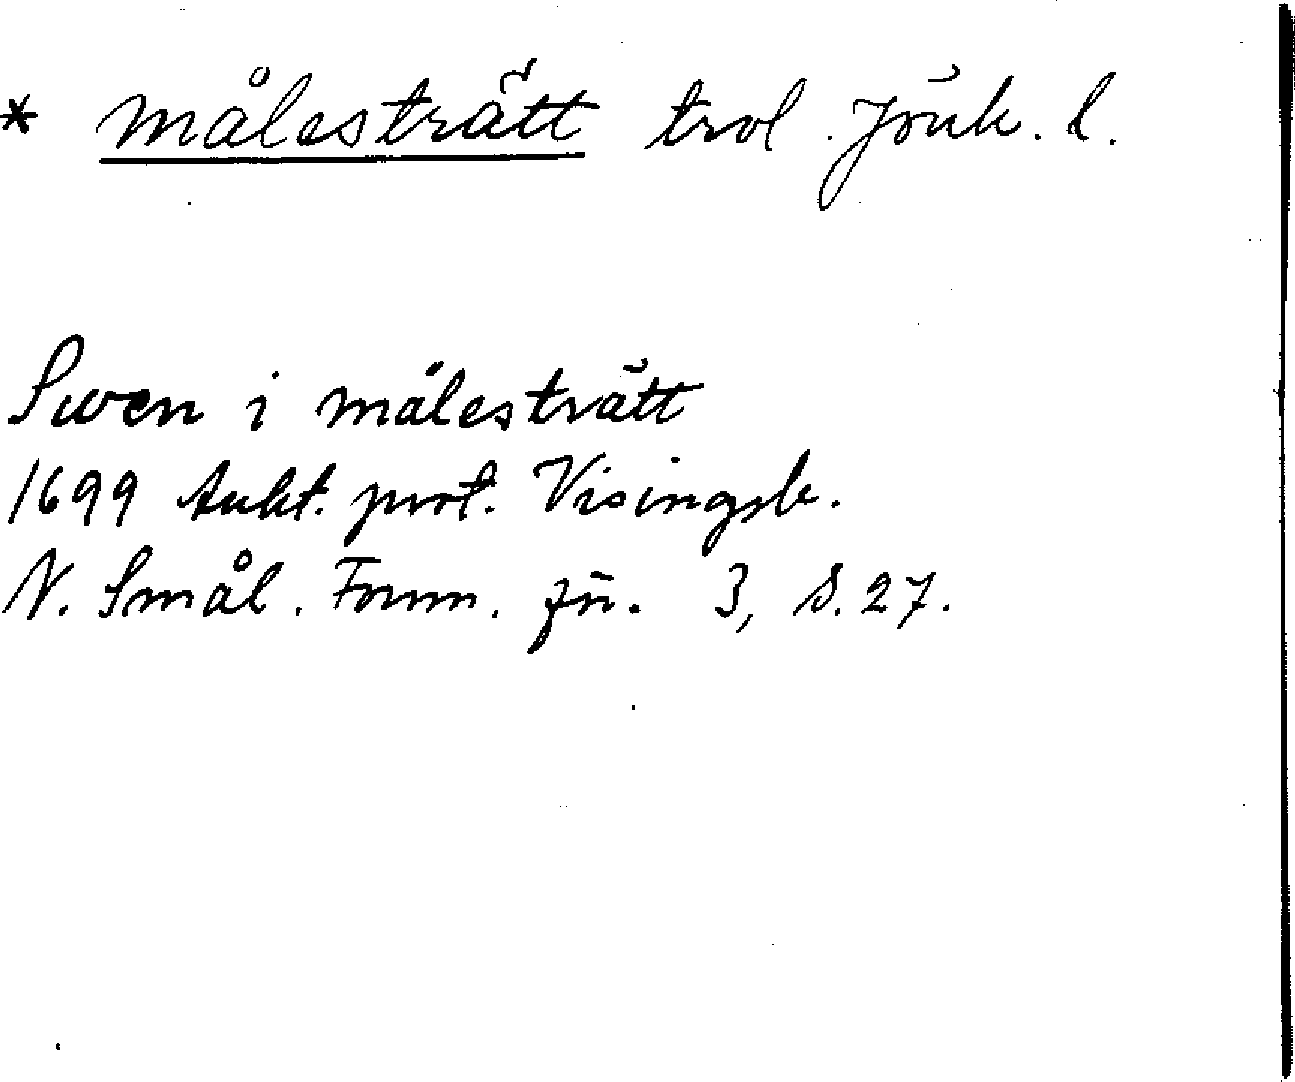 * Målesträtt trol. Jönk. l.
Swen i Målesträtt
1699 tukt. prot. Visingsb.
N. Smål. Fornm. för. 3, s. 27.